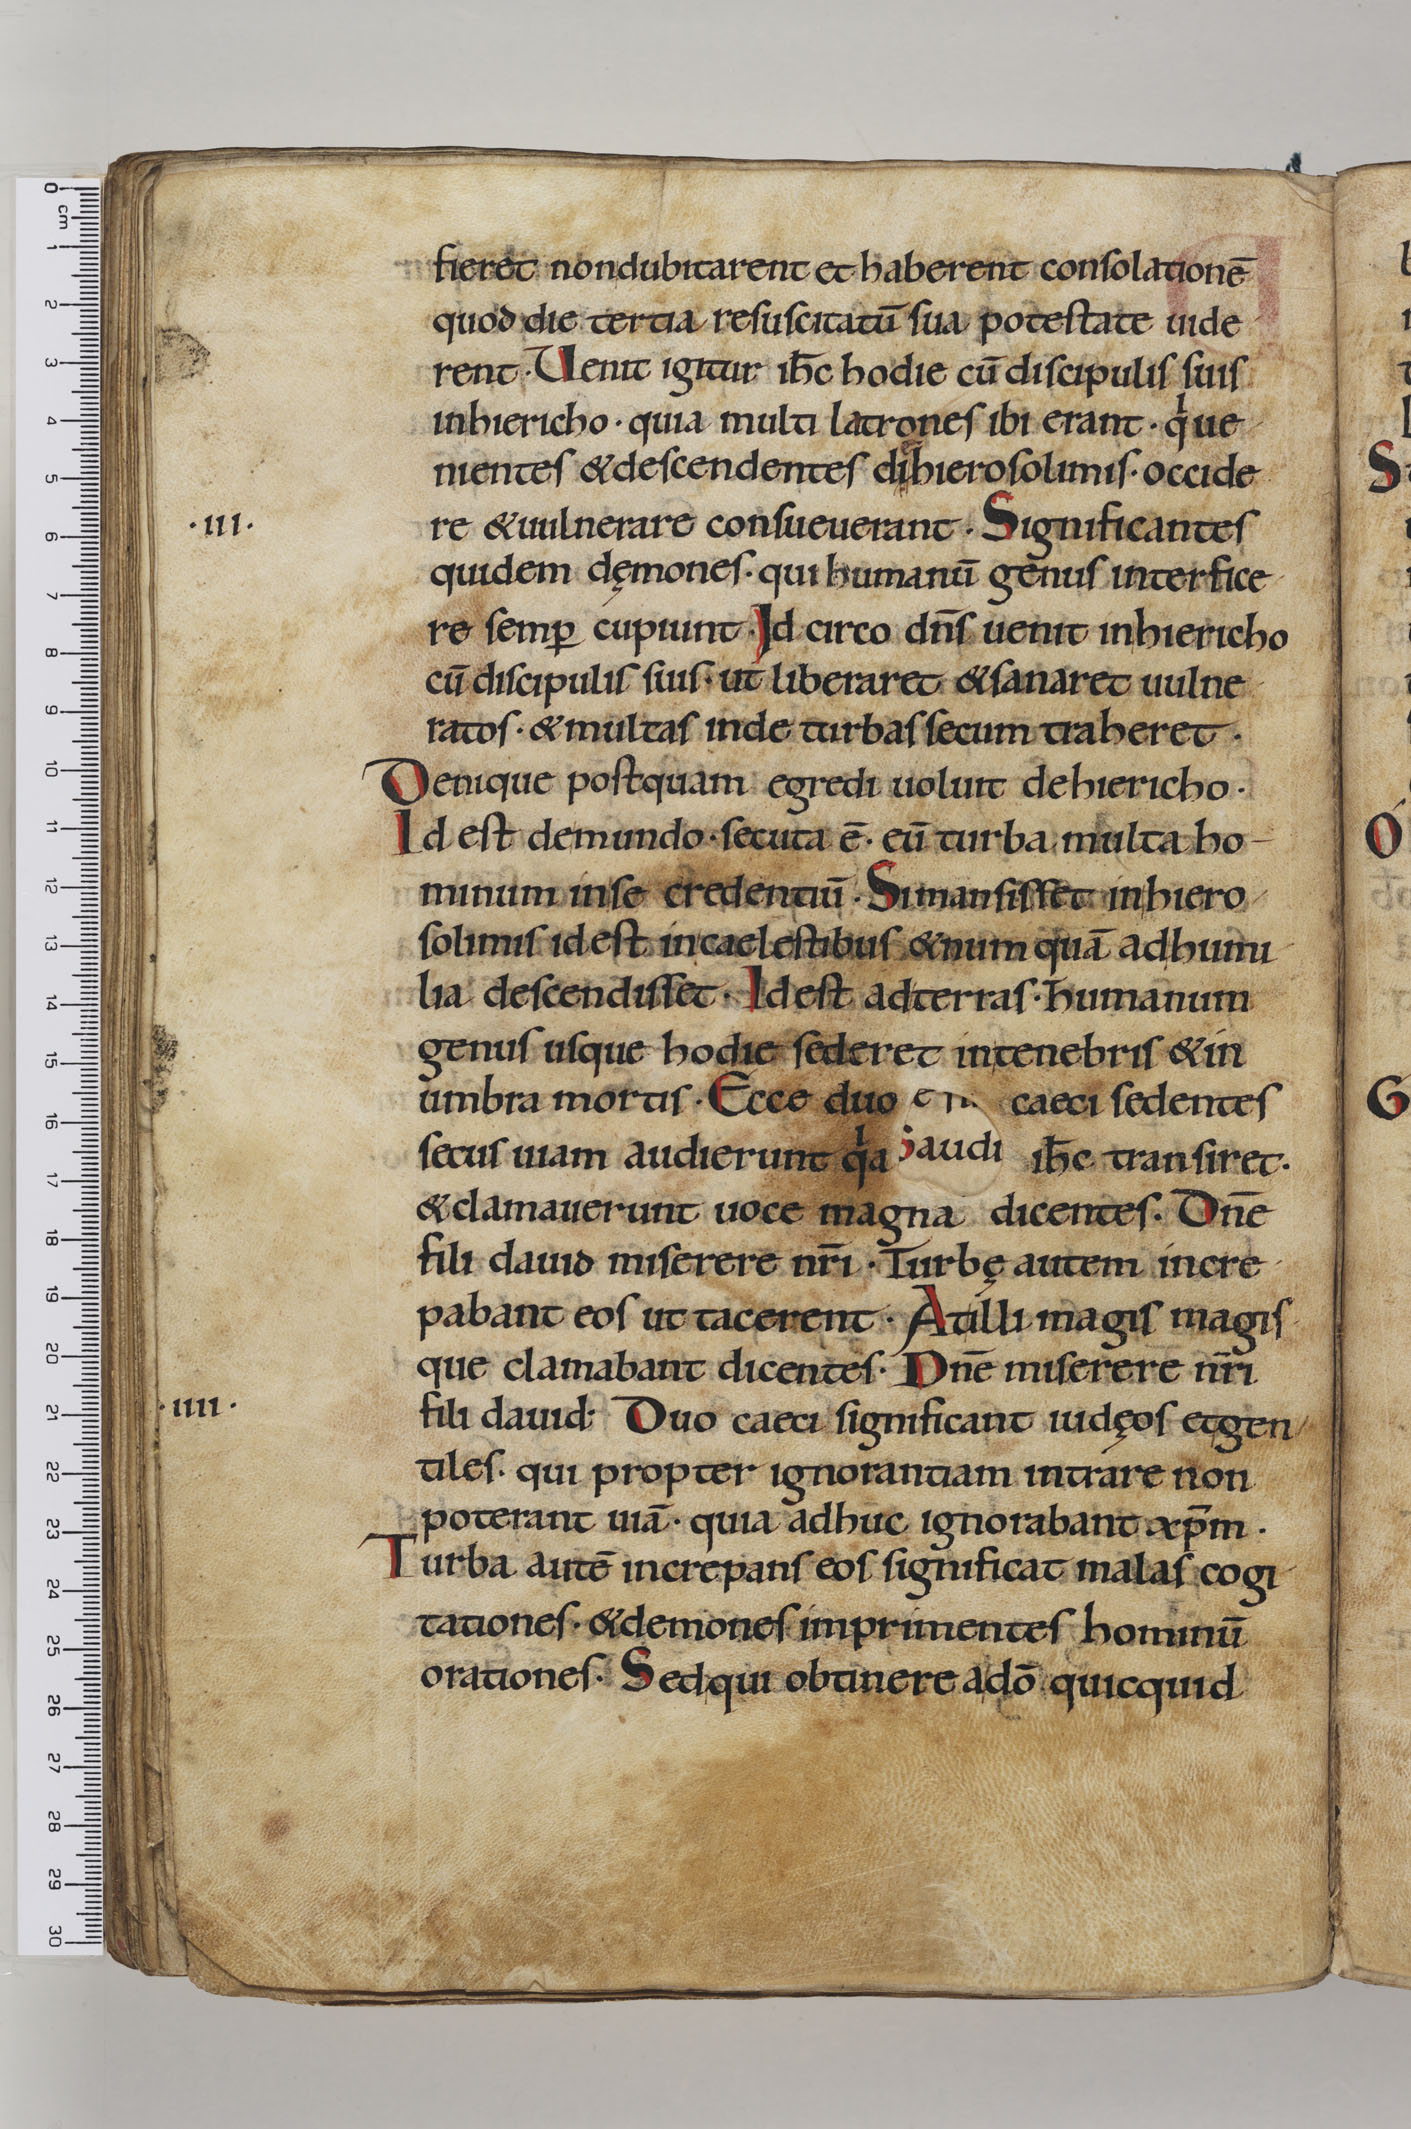 fieret nondubitarent et haberent consolationē
quod die tertia resuscitatū sua potestate uide
rent. Uenit igitur ih̄c hodie cū discipulis suis
inhiericho · quia multi latrones ibi erant · qͥ ue
nientes &descendentes dihierosolimis · occide
·III· re &uulnerare consueuerant · Significantes
quidem dęmones · qui humanū genus interfice
re semꝑ cupiunt · Id circo dn̄s uenit inhiericho
cū discipulis suis · ut liberaret &sanaret uulne
ratos · &multas inde turbas secum traheret ·
Denique postquam egredi uoluit dehiericho ·
Id est demundo · secuta ē · eū turba multa ho
minum inse credentiū · Simansisset inhiero
solimis idest incaelestibus &numquā adhumi
lia descendisset · Idest adterras · humanum
genus usque hodie sederet intenebris &in
umbra mortis · Ecce duo caeci sedentes
secus uiam audierunt qͥa audi ih̄c transiret ·
&clamauerunt uoce magna dicentes · Dn̄e
fili dauid miserere nr̄i · Turbę autem incre
pabant eos ut tacerent · Atilli magis magis
que clamabant dicentes · Dn̄e miserere nr̄i
·IIII· fili dauid · Duo caeci significant iudęos etgen
tiles · qui propter ignorantiam intrare non
poterant uiā · quia adhuc ignorabant xp̄m ·
Turba autē increpans eos significat malas cogi
tationes · &demones imprimentes hominū
orationes · Sedqui obtinere adō quicquid